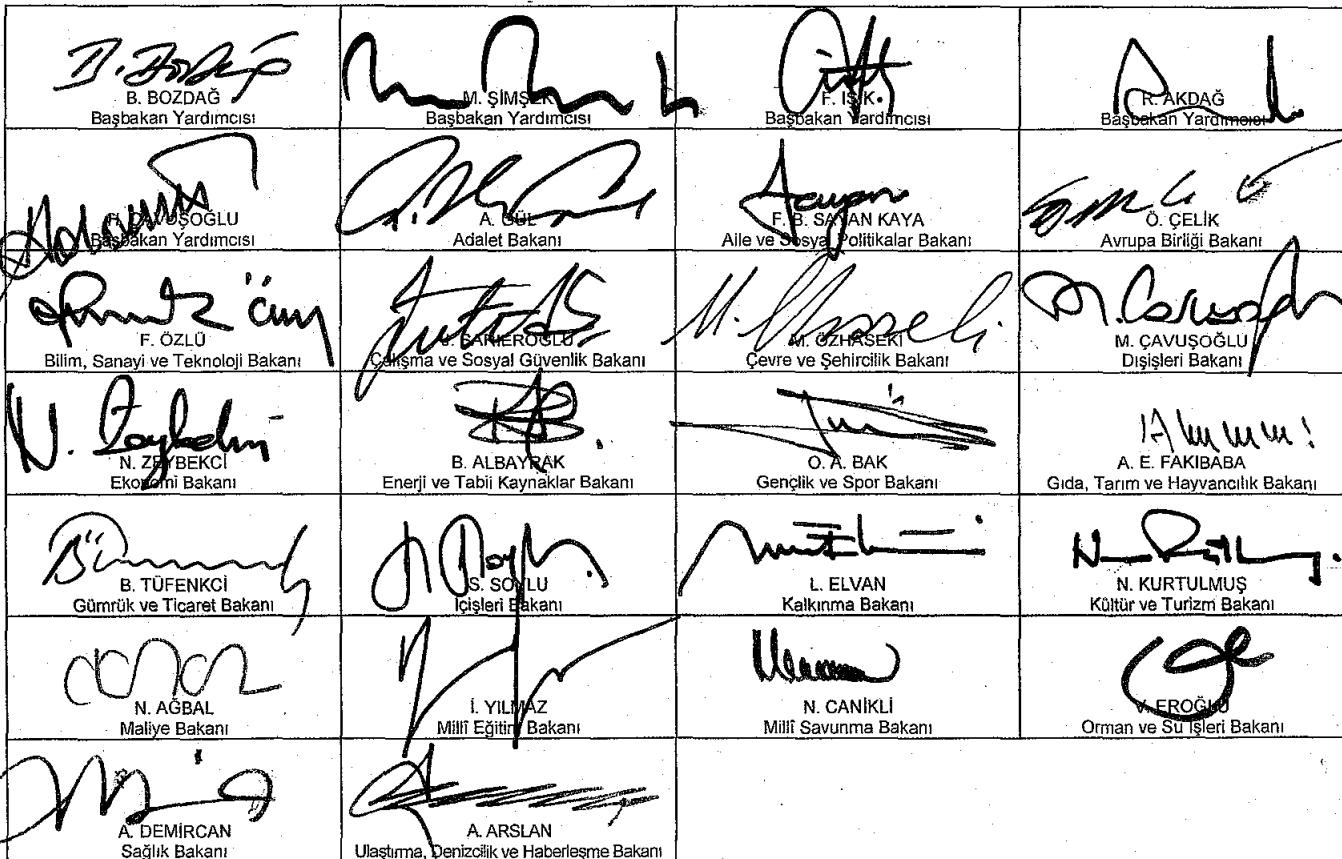 B. BOZDAĞ
Başbakan Yardımcısı
M. ŞİMŞEK
Başbakan Yardımcısı
F. IŞIK
Başbakan Yardımcısı
R. AKDAĞ
Başbakan Yardımcısı
H. ÇAVUŞOĞLU
Başbakan Yardımcısı
A. GÜL
Adalet Bakanı
F. B. SAYAN KAYA
Aile ve Sosyal Politikalar Bakanı
Ö. ÇELİK
Avrupa Birliği Bakanı
F. ÖZLÜ
Bilim, Sanayi ve Teknoloji Bakanı
J. SARIEROĞLU
Çalışma ve Sosyal Güvenlik Bakanı
M. ÖZHASEKİ
Çevre ve Şehircilik Bakanı
M. ÇAVUŞOĞLU
Dışişleri Bakanı
N. Zeybekci
N. ZEYBEKCİ
Ekonomi Bakanı
B. ALBAYRAK
Enerji ve Tabii Kaynaklar Bakanı
O. A. BAK
Gençlik ve Spor Bakanı
A. E. FAKIBABA
Gıda, Tarım ve Hayvancılık Bakanı
B. TÜFENKCİ
Gümrük ve Ticaret Bakanı
S. SOYLU
İçişleri Bakanı
L. ELVAN
Kalkınma Bakanı
N. KURTULMUŞ
Kültür ve Turizm Bakanı
N. AĞBAL
Maliye Bakanı
İ. YILMAZ
Millî Eğitim Bakanı
N. CANİKLİ
Millî Savunma Bakanı
V. EROĞLU
Orman ve Su İşleri Bakanı
A. DEMİRCAN
Sağlık Bakanı
A. ARSLAN
Ulaştırma, Denizcilik ve Haberleşme Bakanı